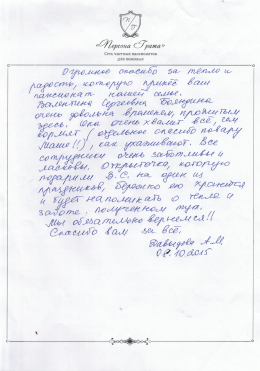 «Перечна Грата»
Сеть частных пансионатов
для пожилых
Огромное спасибо за тепло и
радость, которую принёс ваш
пансионат нашей семье.
Валентина Сергеевна
очень довольна временем, прожитым
здесь. Она очень хвалит всё, чем
кормят (отдельное спасибо повару
Маше!!), как ухаживают. Все
сотрудники очень заботливы и
ласковы. Открыточка, которую
подарили В.С. на один из
праздников, бережно ею хранится
и будет напоминать о тепле и
заботе, полученном тут.
Мы обязательно вернёмся!!
Спасибо вам за всё.
Давыдова А.М.
10.2015